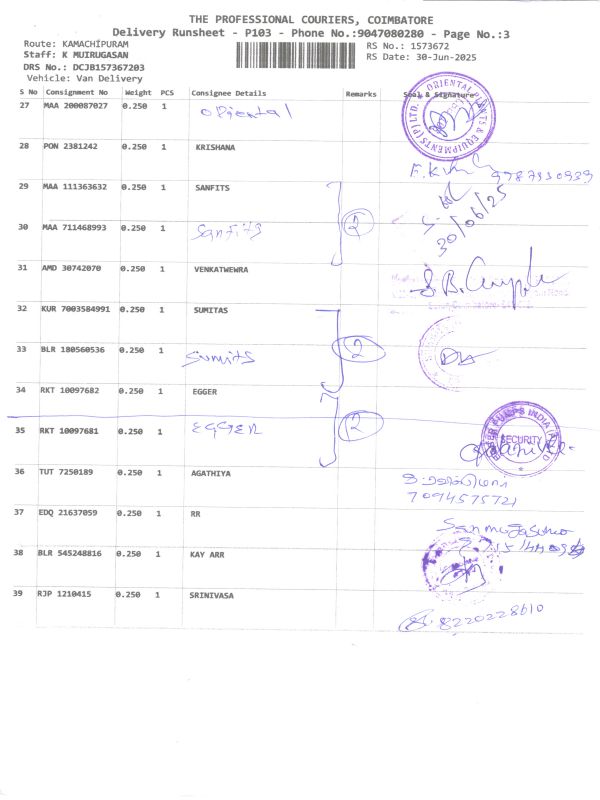 THE PROFESSIONAL COURIERS, COIMBATORE
Delivery Runsheet - P103 - Phone No.:9047080280 - Page No.:3
Route: KAMACHIPURAM
Staff: K MUIRUGASAN
DRS No.: DCJB157367203
Vehicle: Van Delivery
RS No.: 1573672
RS Date: 30-Jun-2025
S No Consignment No Weight PCS Consignee Details Remarks Seal & Signature
27 MAA 200087027 0.250 1 Oriental
ORIENTAL PLANTS & EQUIPMENTS (P) LTD.
28 PON 2381242 0.250 1 KRISHANA
9787310939
29 MAA 111363632 0.250 1 SANFITS
30/06/25
30 MAA 711468993 0.250 1 Sanfits 2
31 AMD 30742070 0.250 1 VENKATWEWRA
32 KUR 7003584991 0.250 1 SUMITAS
33 BLR 180560536 0.250 1 Sumits 2
34 RKT 10097682 0.250 1 EGGER
35 RKT 10097681 0.250 1 EGGER 2
PUMPS INDIA
SECURITY
36 TUT 7250189 0.250 1 AGATHIYA
7094575721
37 EDQ 21637059 0.250 1 RR
38 BLR 545248816 0.250 1 KAY ARR
39 RJP 1210415 0.250 1 SRINIVASA
8220228610